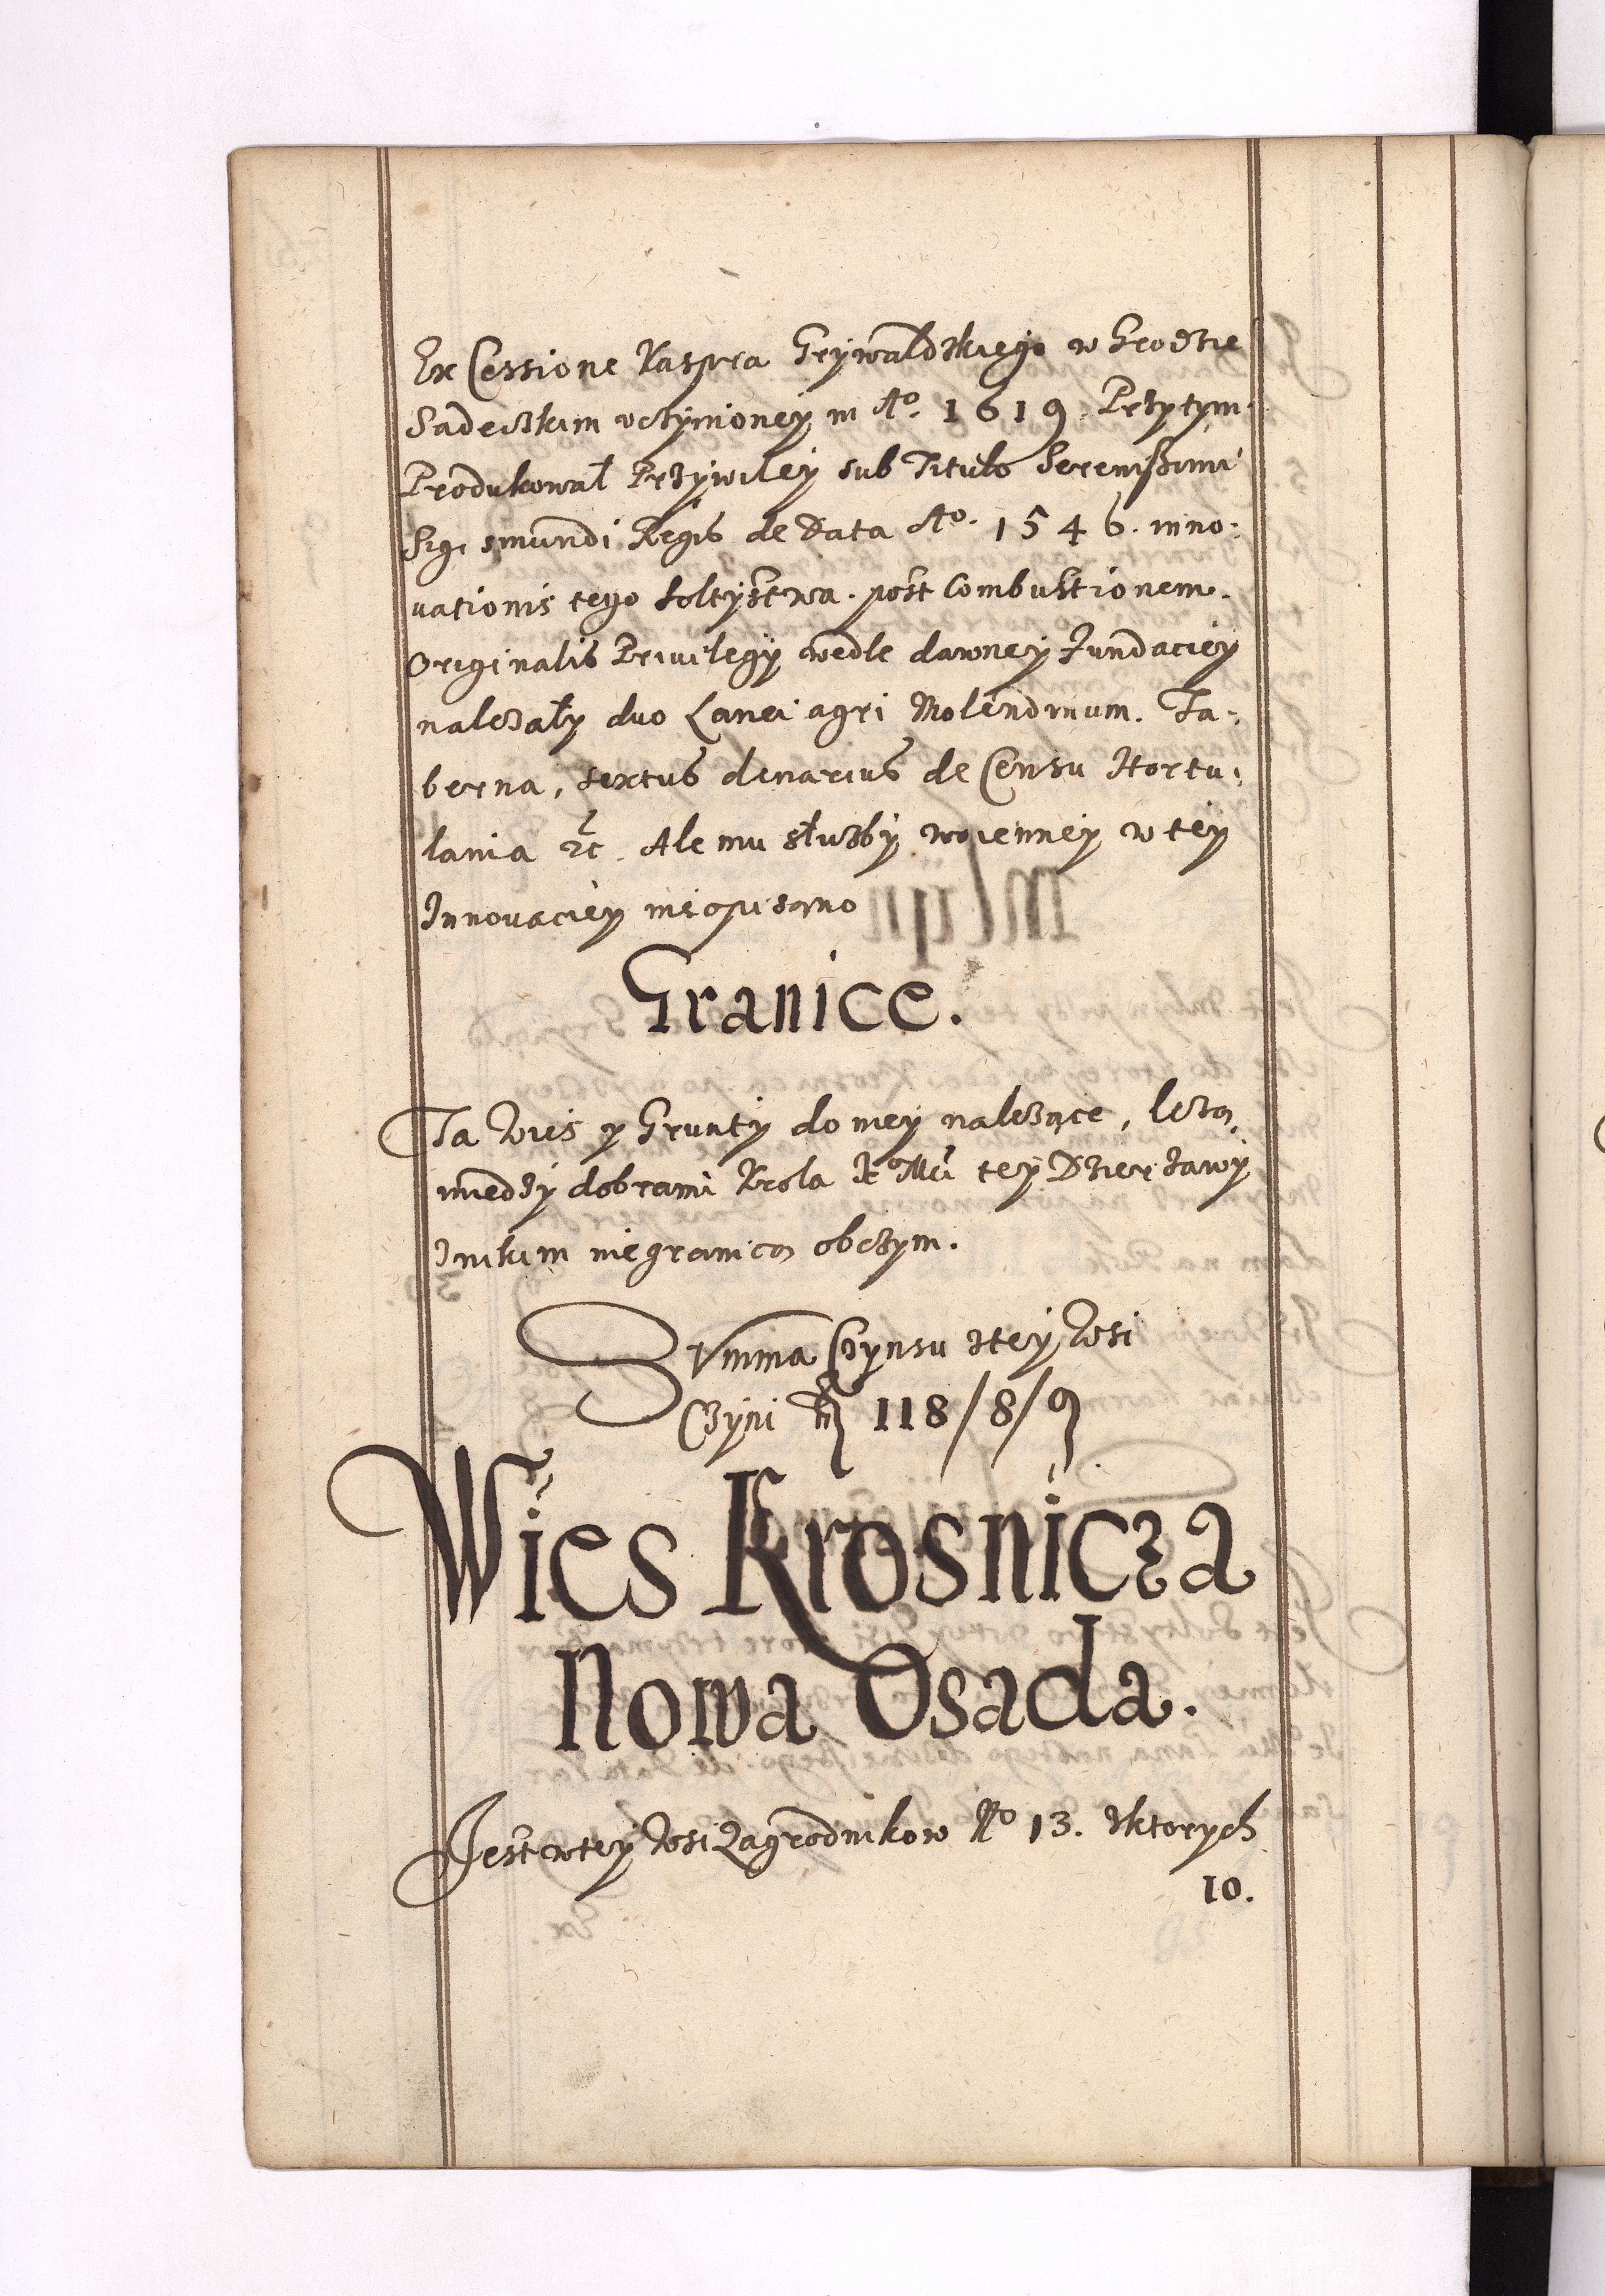 Ex Cessione Kaspra Grywaldzkiego w Grodzie
Sadeczkim vczynioney in Ao. 1619. Przytym
Produkowal Przywiley sub Titulo Serenissimi
Sigismundi Regis de Data Ao. 1546. inno:
vationis tego Soltystwa. post Combustionem.
Originalis Privilegy wedle dawney Fundaciey
nalezały duo Lanei agri Molendinum. Ta:
berna, sextus denarius de Censu Hortu:
lania etc. Ale mu służby woienney w tey
Innovaciey nieopisano
Granice.
Ta Wies y Grunty do niey nalezące, lezą
miedzy dobrami Krola Je Mci tey Dzierzawy
Inikim niegranicą obczym.
Summa Czynsu ztey Wsi
Czyni fl 118/8/9
Wies Krosnicza
Nowa Osada.
Jest wtey Wsi Zagrodnikow No 13. Zktorych
10.